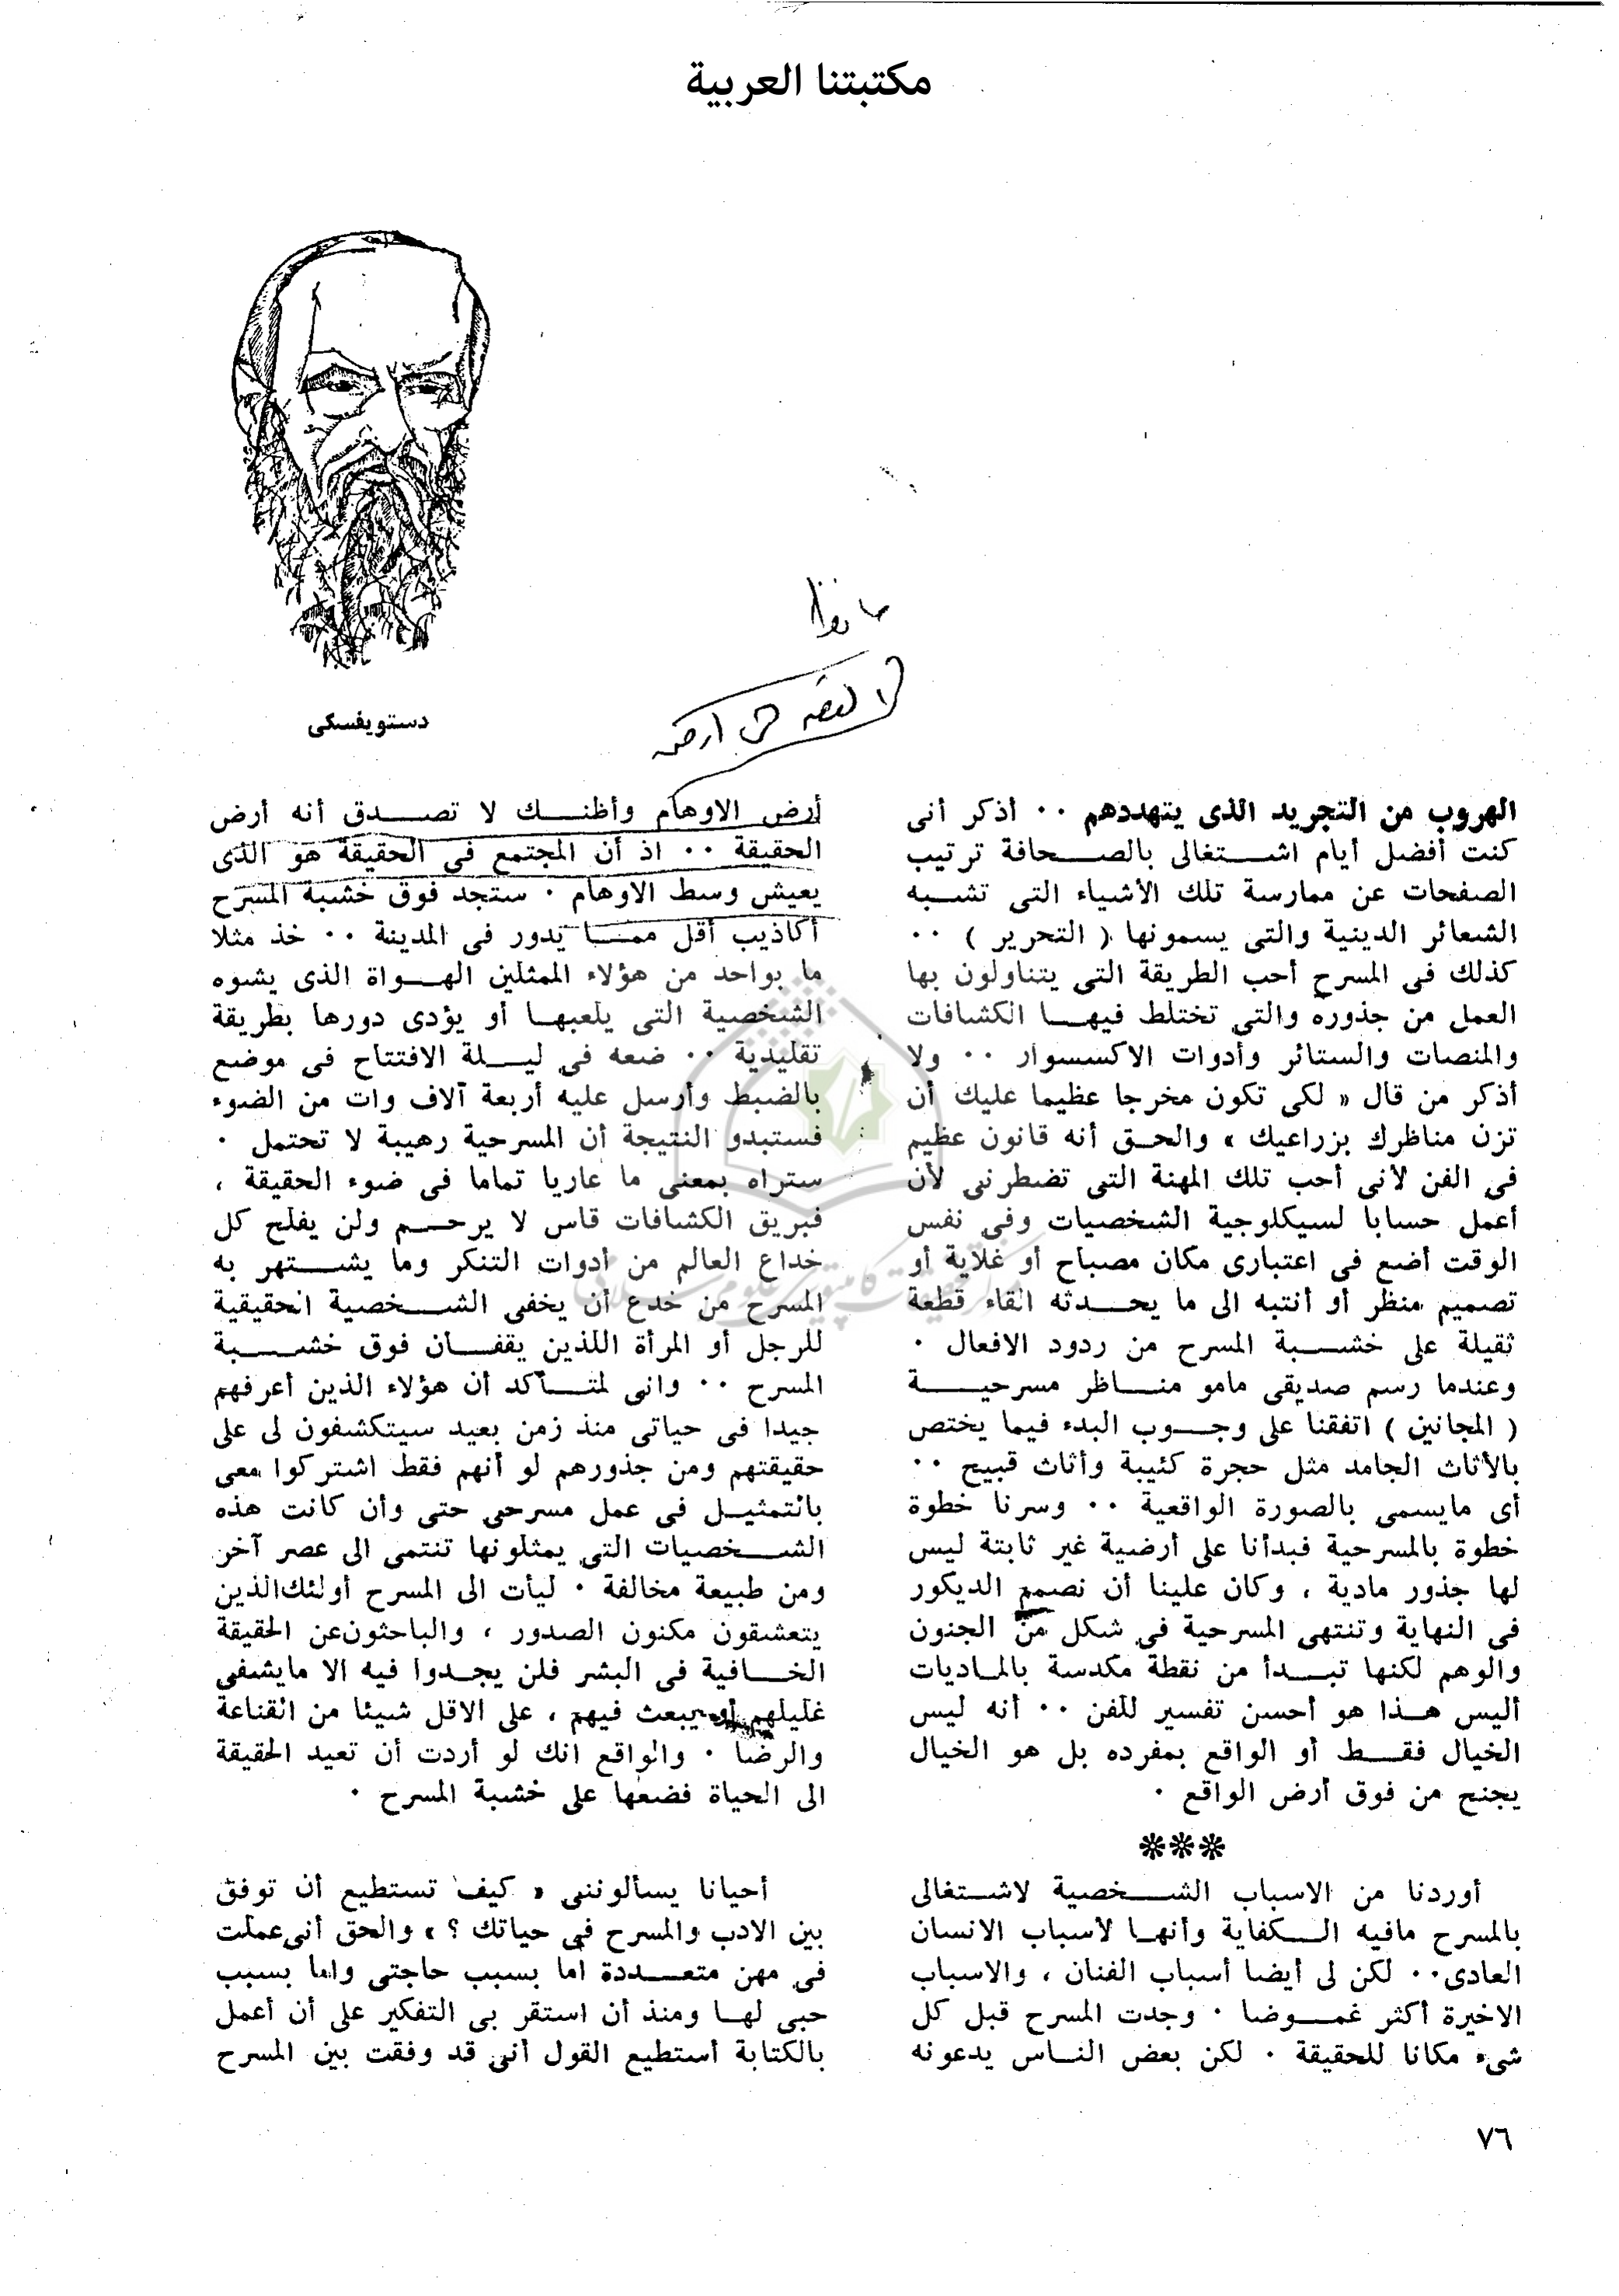 مكتبتنا العربية
دستويفسكى
الهروب من التجريد الذى يتهددهم ٠٠ أذكر أنى
كنت أفضل أيام اشتغالى بالصحافة ترتيب
الصفحات عن ممارسة تلك الأشياء التى تشبه
الشعائر الدينية والتى يسمونها ( التحرير ) ٠٠
كذلك فى المسرح أحب الطريقة التى يتناولون بها
العمل من جذوره والتى تختلط فيها الكشافات
والمنصات والستائر وأدوات الاكسسوار ٠٠ ولا
أذكر من قال « لكى تكون مخرجا عظيما عليك أن
تزن مناظرك بزراعيك » والحق أنه قانون عظيم
فى الفن لأنى أحب تلك المهنة التى تضطرنى لأن
أعمل حسابا لسيكلوجية الشخصيات وفى نفس
الوقت أضع فى اعتبارى مكان مصباح أو غلاية أو
تصميم منظر أو أنتبه الى ما يحدثه القاء قطعة
ثقيلة على خشبة المسرح من ردود الافعال ٠
وعندما رسم صديقى مامو مناظر مسرحية
( المجانين ) اتفقنا على وجوب البدء فيما يختص
بالأثاث الجامد مثل حجرة كئيبة وأثاث قبيح ٠٠
أى مايسمى بالصورة الواقعية ٠٠ وسرنا خطوة
خطوة بالمسرحية فبدأنا على أرضية غير ثابتة ليس
لها جذور مادية ، وكان علينا أن نصمم الديكور
فى النهاية وتنتهى المسرحية فى شكل من الجنون
والوهم لكنها تبدأ من نقطة مكدسة بالماديات
أليس هذا هو أحسن تفسير للفن ٠٠ أنه ليس
الخيال فقط أو الواقع بمفرده بل هو الخيال
يجنح من فوق أرض الواقع ٠
***
أوردنا من الاسباب الشخصية لاشتغالى
بالمسرح مافيه الكفاية وأنها لأسباب الانسان
العادى٠٠ لكن لى أيضا أسباب الفنان ، والاسباب
الاخيرة أكثر غموضا ٠ وجدت المسرح قبل كل
شىء مكانا للحقيقة ٠ لكن بعض الناس يدعونه
أرض الاوهام وأظنك لا تصدق أنه أرض
الحقيقة ٠٠ اذ أن المجتمع فى الحقيقة هو الذى
يعيش وسط الاوهام ٠ ستجد فوق خشبة المسرح
أكاذيب أقل مما يدور فى المدينة ٠٠ خذ مثلا
ما بواحد من هؤلاء الممثلين الهواة الذى يشوه
الشخصية التى يلعبها أو يؤدى دورها بطريقة
تقليدية ٠٠ ضعه فى ليلة الافتتاح فى موضع
بالضبط وأرسل عليه أربعة آلاف وات من الضوء
فستبدو النتيجة أن المسرحية رهيبة لا تحتمل ٠
ستراه بمعنى ما عاريا تماما فى ضوء الحقيقة ،
فبريق الكشافات قاس لا يرحم ولن يفلح كل
خداع العالم من أدوات التنكر وما يشتهر به
المسرح من خدع أن يخفى الشخصية الحقيقية
للرجل أو المرأة اللذين يقفان فوق خشبة
المسرح ٠٠ وانى لمتأكد أن هؤلاء الذين أعرفهم
جيدا فى حياتى منذ زمن بعيد سيتكشفون لى على
حقيقتهم ومن جذورهم لو أنهم فقط اشتركوا معى
بالتمثيل فى عمل مسرحى حتى وأن كانت هذه
الشخصيات التى يمثلونها تنتمى الى عصر آخر
ومن طبيعة مخالفة ٠ ليأت الى المسرح أولئك الذين
يتعشقون مكنون الصدور ، والباحثون عن الحقيقة
الخافية فى البشر فلن يجدوا فيه الا مايشفى
غليلهم أو يبعث فيهم ، على الاقل شيئا من القناعة
والرضا ٠ والواقع انك لو أردت أن تعيد الحقيقة
الى الحياة فضعها على خشبة المسرح ٠
أحيانا يسألوننى « كيف تستطيع أن توفق
بين الادب والمسرح فى حياتك ؟ » والحق أنى عملت
فى مهن متعددة اما بسبب حاجتى واما بسبب
حبى لها ومنذ أن استقر بى التفكير على أن أعمل
بالكتابة أستطيع القول أنى قد وفقت بين المسرح
٧٦